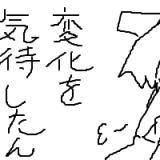 変化を
気待したん